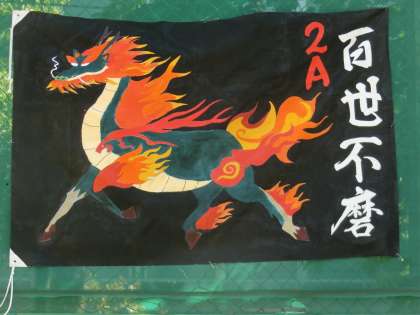 百世不磨
2A